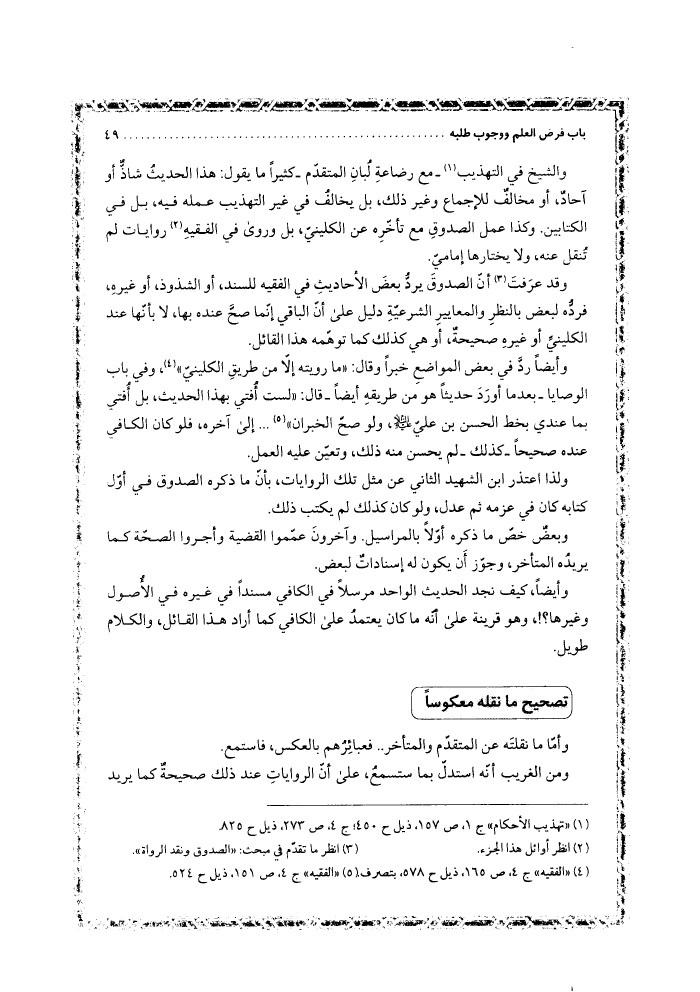 باب فرض العلم ووجوب طلبه ........................................................ ٤٩
والشيخ في التهذيب(١) ـ مع رضاعةِ لُبانِ المتقدّم ـ كثيراً ما يقول: هذا الحديثُ شاذٌّ أو
آحادٌ، أو مخالفٌ للإجماع وغير ذلك، بل يخالفُ في غير التهذيب عمله فيه، بل في
الكتابين. وكذا عمل الصدوقِ مع تأخّرِه عن الكلينيّ، بل وروىٰ في الفقيهِ(٢) روايات لم
تُنقل عنه، ولا يختارها إماميّ.
وقد عرَفتَ(٣) أنّ الصدوقَ يردُّ بعضَ الأحاديثِ في الفقيه للسند، أو الشذوذ، أو غيرهِ،
فردُّه لبعض بالنظرِ والمعاييرِ الشرعيّةِ دليل علىٰ أنّ الباقي إنّما صحَّ عنده بها، لا بأنّها عند
الكلينيِّ أو غيرهِ صحيحةٌ، أو هي كذلك كما توهّمه هذا القائل.
وأيضاً ردَّ في بعض المواضعِ خبراً وقال: «ما رويته إلّا من طريقِ الكلينيّ»(٤)، وفي باب
الوصايا ـ بعدما أورَدَ حديثاً هو من طريقهِ أيضاً ـ قال: «لست أُفتي بهذا الحديث، بل أُفتي
بما عندي بخط الحسن بن عليّ ﷺ، ولو صحّ الخبران»(٥) ... إلىٰ آخره، فلو كان الكافي
عنده صحيحاً ـ كذلك ـ لم يحسن منه ذلك، وتعيّن عليه العمل.
ولذا اعتذر ابن الشهيد الثاني عن مثل تلك الروايات، بأنّ ما ذكره الصدوق في أوّل
كتابه كان في عزمه ثم عدل، ولو كان كذلك لم يكتب ذلك.
وبعضٌ خصّ ما ذكره أوّلاً بالمراسيل. وآخرونَ عمّموا القضية وأجروا الصحّة كما
يريدُه المتأخر، وجوّز أَن يكون له إسناداتٌ لبعض.
وأيضاً، كيف نجد الحديث الواحد مرسلاً في الكافي مسنداً في غيره في الأُصول
وغيرها؟!، وهو قرينة علىٰ أنّه ما كان يعتمدُ علىٰ الكافي كما أراد هذا القائل، والكلام
طويل.
تصحيح ما نقله معكوساً
وأمّا ما نقلتَه عن المتقدّم والمتأخر.. فعبائِرُهم بالعكس، فاستمع.
ومن الغريب أنّه استدلّ بما ستسمعُ، علىٰ أنّ الرواياتِ عند ذلك صحيحةٌ كما يريد
(١) «تهذيب الأحكام» ج ١، ص ١٥٧، ذيل ح ٤٥٠؛ ج ٤، ص ٢٧٣، ذيل ح ٨٢٥.
(٢) انظر أوائل هذا الجزء. (٣) انظر ما تقدّم في مبحث: «الصدوق ونقد الرواة».
(٤) «الفقيه» ج ٤، ص ١٦٥، ذيل ح ٥٧٨، بتصرف. (٥) «الفقيه» ج ٤، ص ١٥١، ذيل ح ٥٢٤.